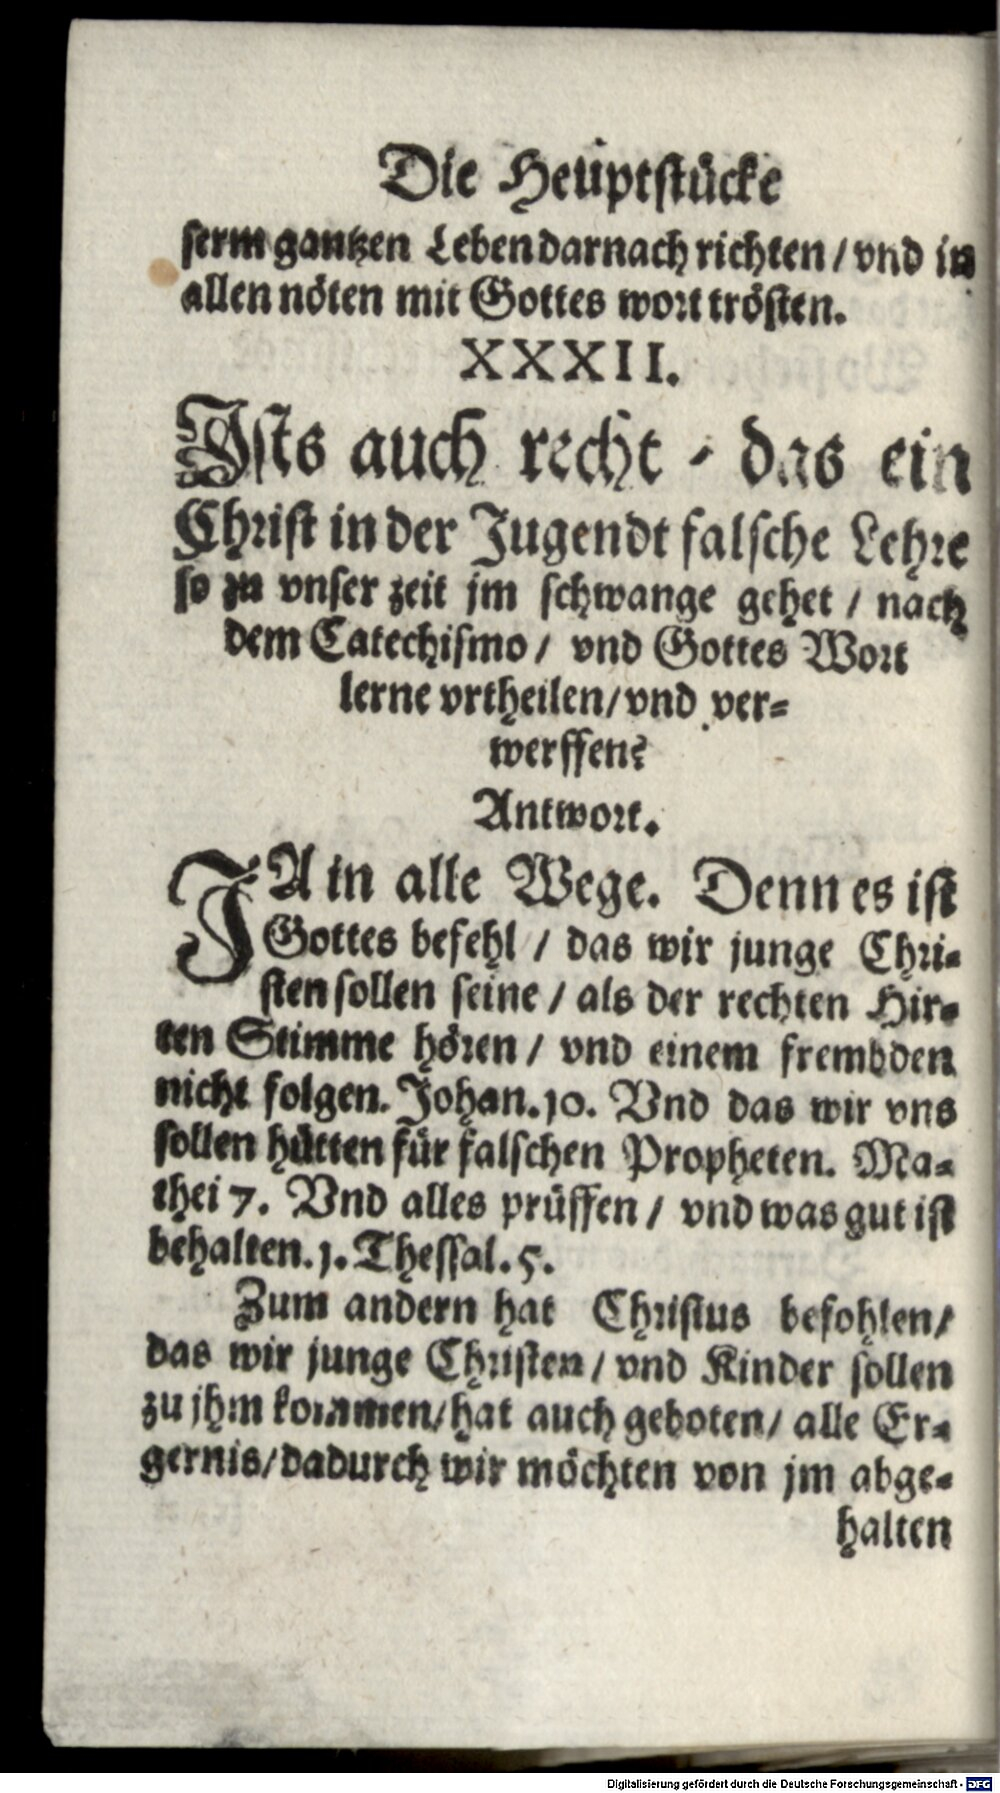 Die Heuptstücke
serm gantzen Leben darnach richten / vnd in
allen nöten mit Gottes wort trösten.
XXXII.
Ists auch recht / das ein
Christ in der Jugendt falsche Lehre
so zu vnser zeit jm schwange gehet / nach
dem Catechismo / vnd Gottes Wort
lerne vrtheilen / vnd ver=
werffen?
Antwort.
JA in alle Wege. Denn es ist
Gottes befehl / das wir junge Chri=
sten sollen seine / als der rechten Hir=
ten Stimme hören / vnd einem frembden
nicht folgen. Johan. 10. Vnd das wir vns
sollen hütten für falschen Propheten. Ma=
thei 7. Vnd alles prüffen / vnd was gut ist
behalten. 1. Thessal. 5.
Zum andern hat Christus befohlen /
das wir junge Christen / vnd Kinder sollen
zu jhm kommen / hat auch geboten / alle Er=
gernis / dadurch wir möchten von jm abge=
halten
Digitalisierung gefördert durch die Deutsche Forschungsgemeinschaft - DFG